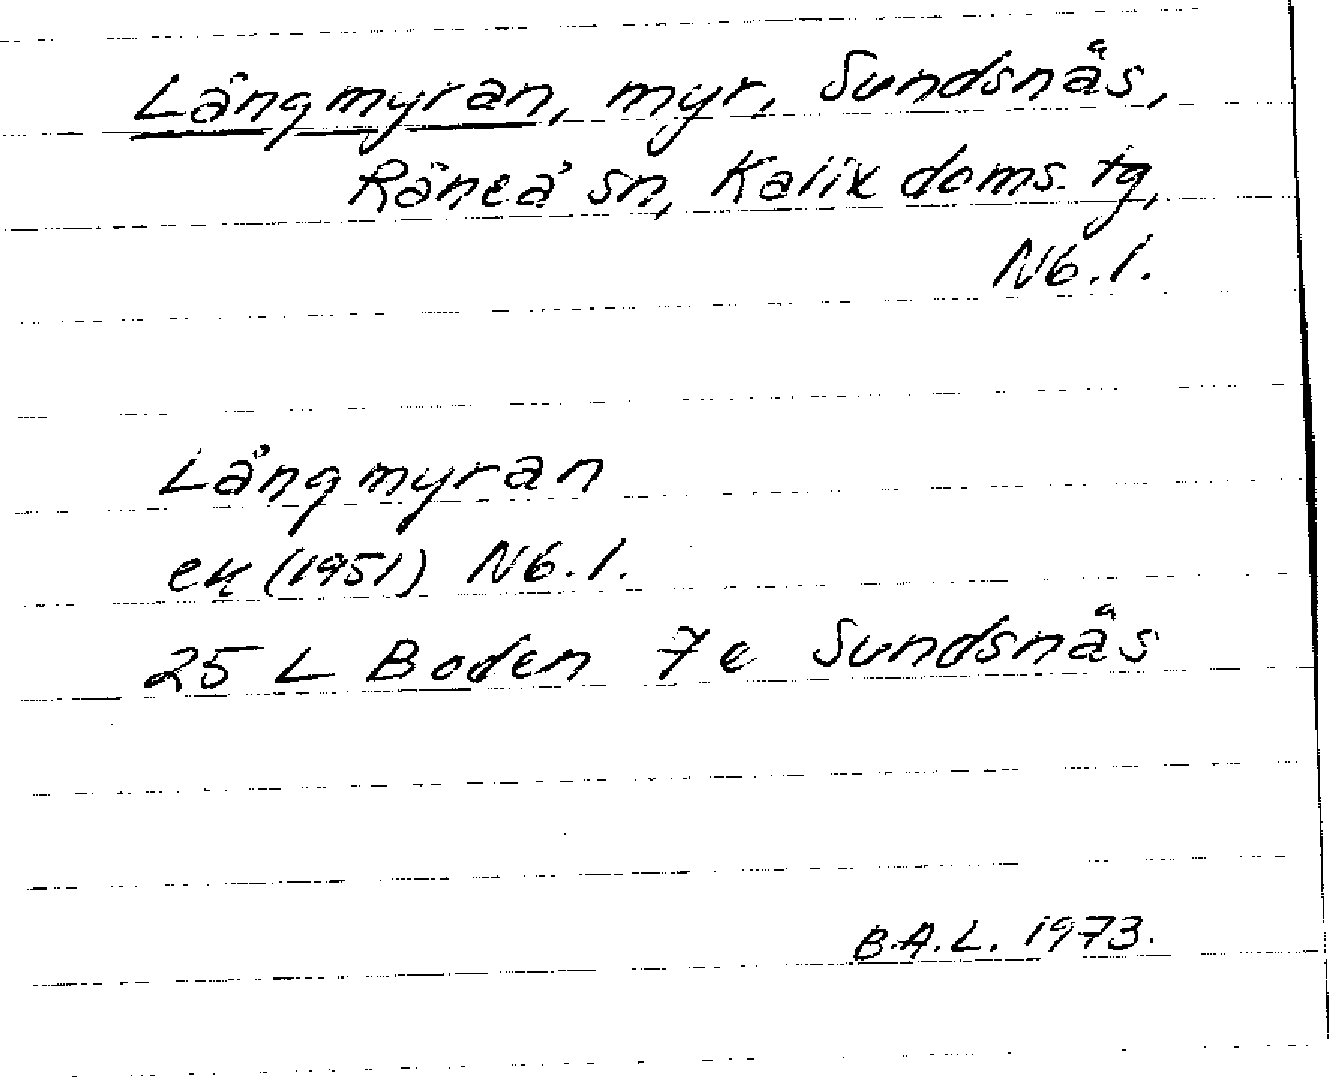 Långmyran, myr, Sundsnäs,
Råneå sn, Kalix doms. tg,
Nb. l.
Långmyran
ek (1951) Nb. l.
25 L Boden 7e Sundsnäs
B.A.L. 1973.